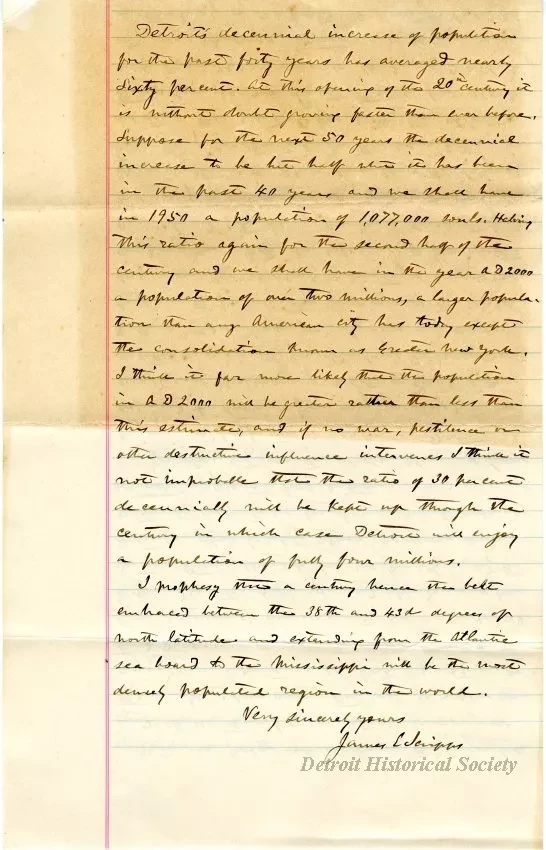 Detroit's decennial increase of population
for the past forty years has averaged nearly
sixty per cent. At this opening of the 20th century it
is without doubt growing faster than ever before.
Suppose for the next 50 years the decennial
increase to be but half what it has been
in the past 40 years and we shall have
in 1950 a population of 1,077,000 souls. Halving
this ratio again for the second half of the
century and we shall have in the year A D 2000
a population of over two millions, a larger popula-
tion than any American city has today except
the consolidation known as Greater New York.
I think it far more likely that the population
in A D 2000 will be greater rather than less than
this estimate, and if no war, pestilence or
other destructive influence intervenes I think it
not improbable that the ratio of 30 per cent
decennially will be kept up though the
century in which case Detroit will enjoy
a population of fully four millions.
I prophesy that a century hence the belt
embraced between the 38th and 43d degrees of
north latitude and extending from the Atlantic
sea board to the Mississippi will be the most
densely populated region in the world.
Very sincerely yours
James E Scripps
Detroit Historical Society